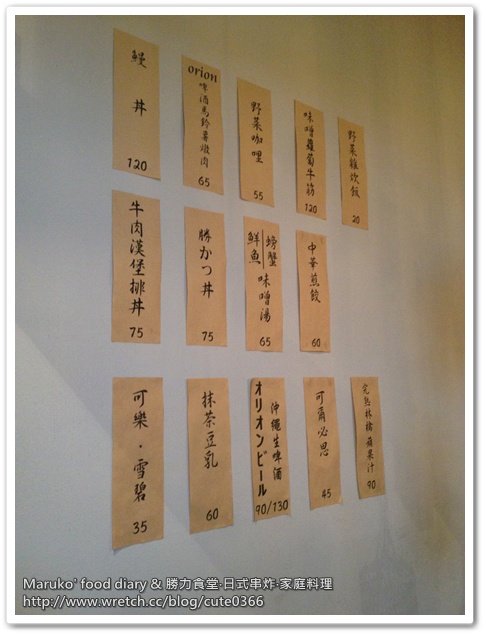 鰻丼
120
orion
啤酒馬鈴薯燉肉
65
野菜咖哩
55
味噌蘿蔔牛筋
120
野菜雜炊飯
20
牛肉漢堡排丼
75
勝かつ丼
75
螃蟹
鮮魚
味噌湯
65
中華煎餃
60
可樂・雪碧
35
抹茶豆乳
60
沖繩生啤酒
オリオンビール
90/130
可爾必思
45
完熟林檎蘋果汁
90
Maruko' food diary & 勝力食堂‧日式串炸‧家庭料理
http://www.wretch.cc/blog/cute0366